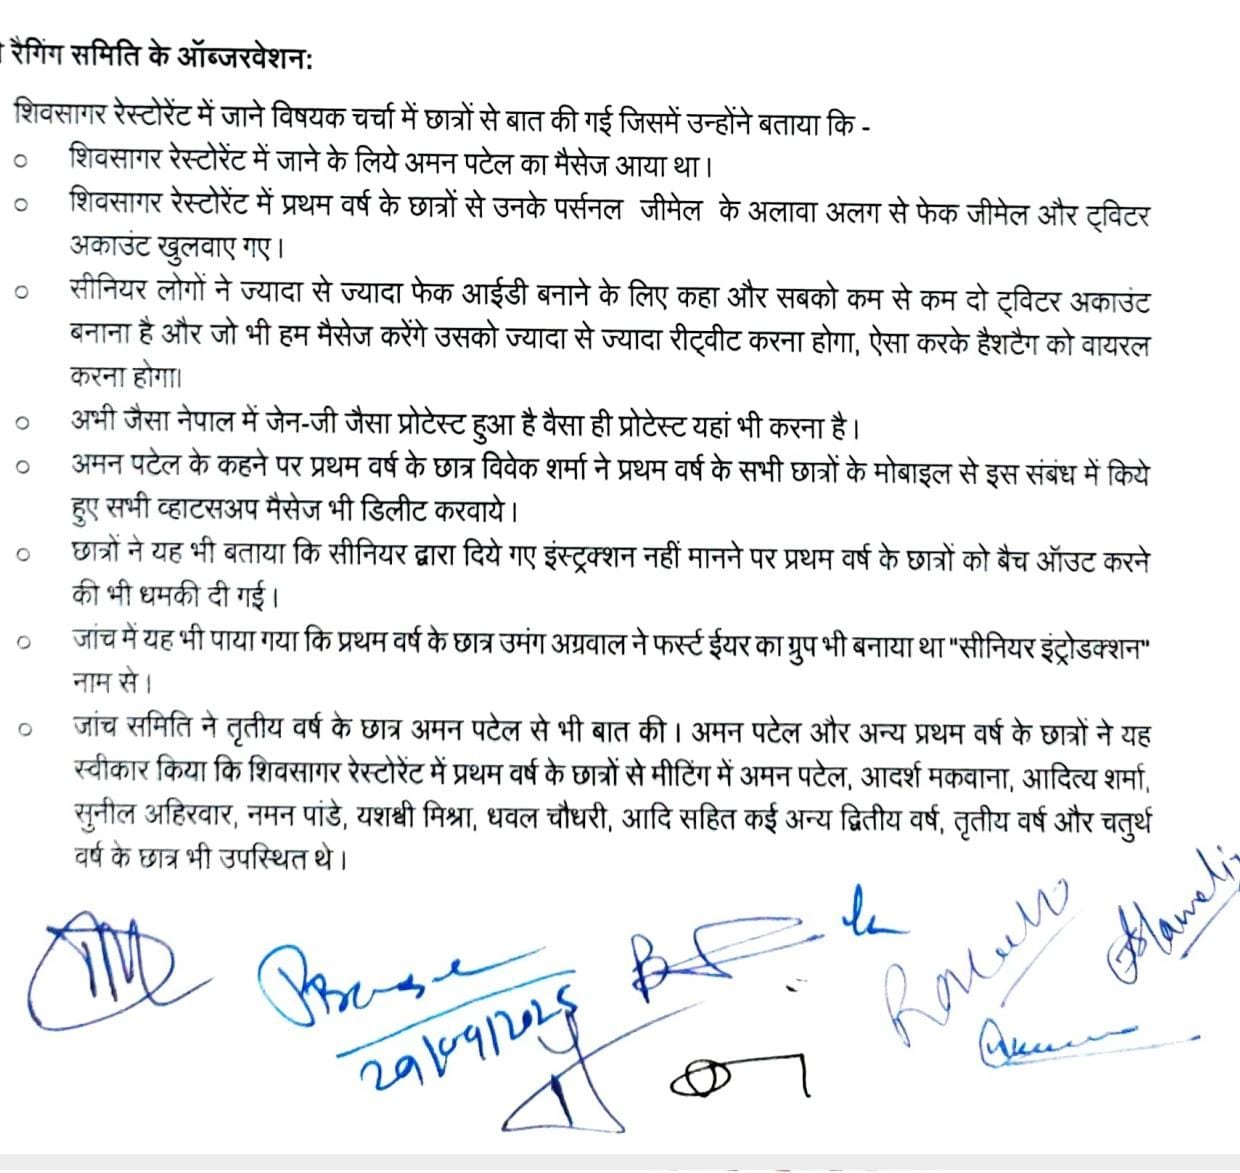 रैगिंग समिति के ऑब्जरवेशन:
शिवसागर रेस्टोरेंट में जाने विषयक चर्चा में छात्रों से बात की गई जिसमें उन्होंने बताया कि -
○ शिवसागर रेस्टोरेंट में जाने के लिये अमन पटेल का मैसेज आया था।
○ शिवसागर रेस्टोरेंट में प्रथम वर्ष के छात्रों से उनके पर्सनल जीमेल के अलावा अलग से फेक जीमेल और ट्विटर
अकाउंट खुलवाए गए।
○ सीनियर लोगों ने ज्यादा से ज्यादा फेक आईडी बनाने के लिए कहा और सबको कम से कम दो ट्विटर अकाउंट
बनाना है और जो भी हम मैसेज करेंगे उसको ज्यादा से ज्यादा रीट्वीट करना होगा, ऐसा करके हैशटैग को वायरल
करना होगा।
○ अभी जैसा नेपाल में जेन-जी जैसा प्रोटेस्ट हुआ है वैसा ही प्रोटेस्ट यहां भी करना है।
○ अमन पटेल के कहने पर प्रथम वर्ष के छात्र विवेक शर्मा ने प्रथम वर्ष के सभी छात्रों के मोबाइल से इस संबंध में किये
हुए सभी व्हाटसअप मैसेज भी डिलीट करवाये।
○ छात्रों ने यह भी बताया कि सीनियर द्वारा दिये गए इंस्ट्रक्शन नहीं मानने पर प्रथम वर्ष के छात्रों को बैच ऑउट करने
की भी धमकी दी गई।
○ जांच में यह भी पाया गया कि प्रथम वर्ष के छात्र उमंग अग्रवाल ने फर्स्ट ईयर का ग्रुप भी बनाया था "सीनियर इंट्रोडक्शन"
नाम से।
○ जांच समिति ने तृतीय वर्ष के छात्र अमन पटेल से भी बात की। अमन पटेल और अन्य प्रथम वर्ष के छात्रों ने यह
स्वीकार किया कि शिवसागर रेस्टोरेंट में प्रथम वर्ष के छात्रों से मीटिंग में अमन पटेल, आदर्श मकवाना, आदित्य शर्मा,
सुनील अहिरवार, नमन पांडे, यशश्वी मिश्रा, धवल चौधरी, आदि सहित कई अन्य द्वितीय वर्ष, तृतीय वर्ष और चतुर्थ
वर्ष के छात्र भी उपस्थित थे।
29/09/2025